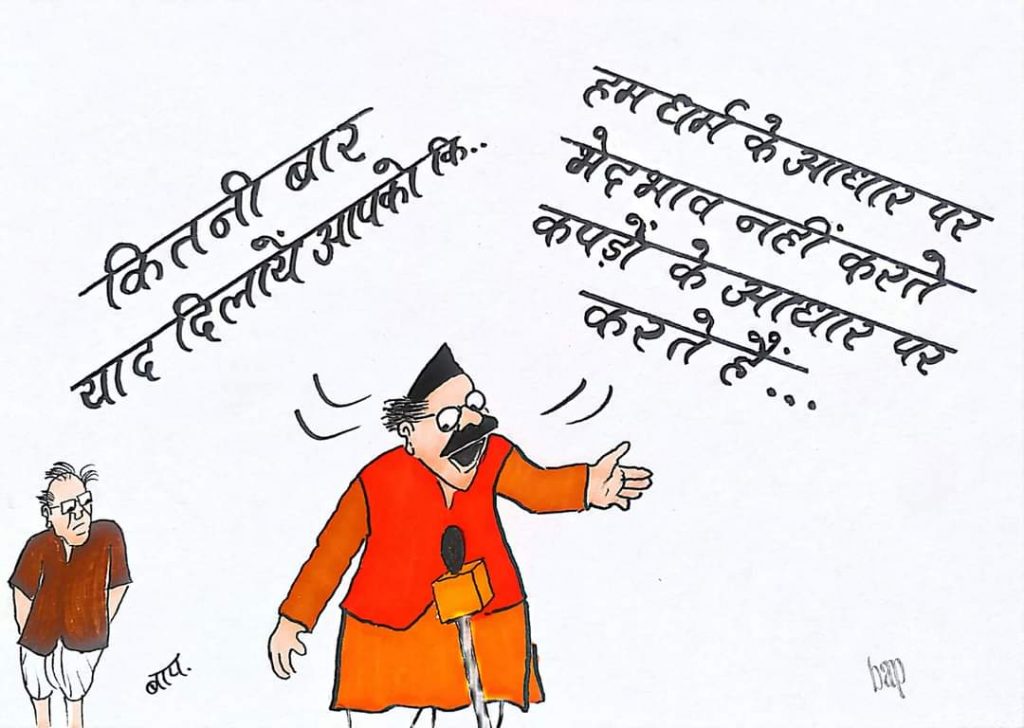 कितनी बार
याद दिलायें आपको कि..
हम धर्म के आधार पर
भेदभाव नहीं करते
कपड़ों के आधार पर
करते हैं...
बाप.
bap